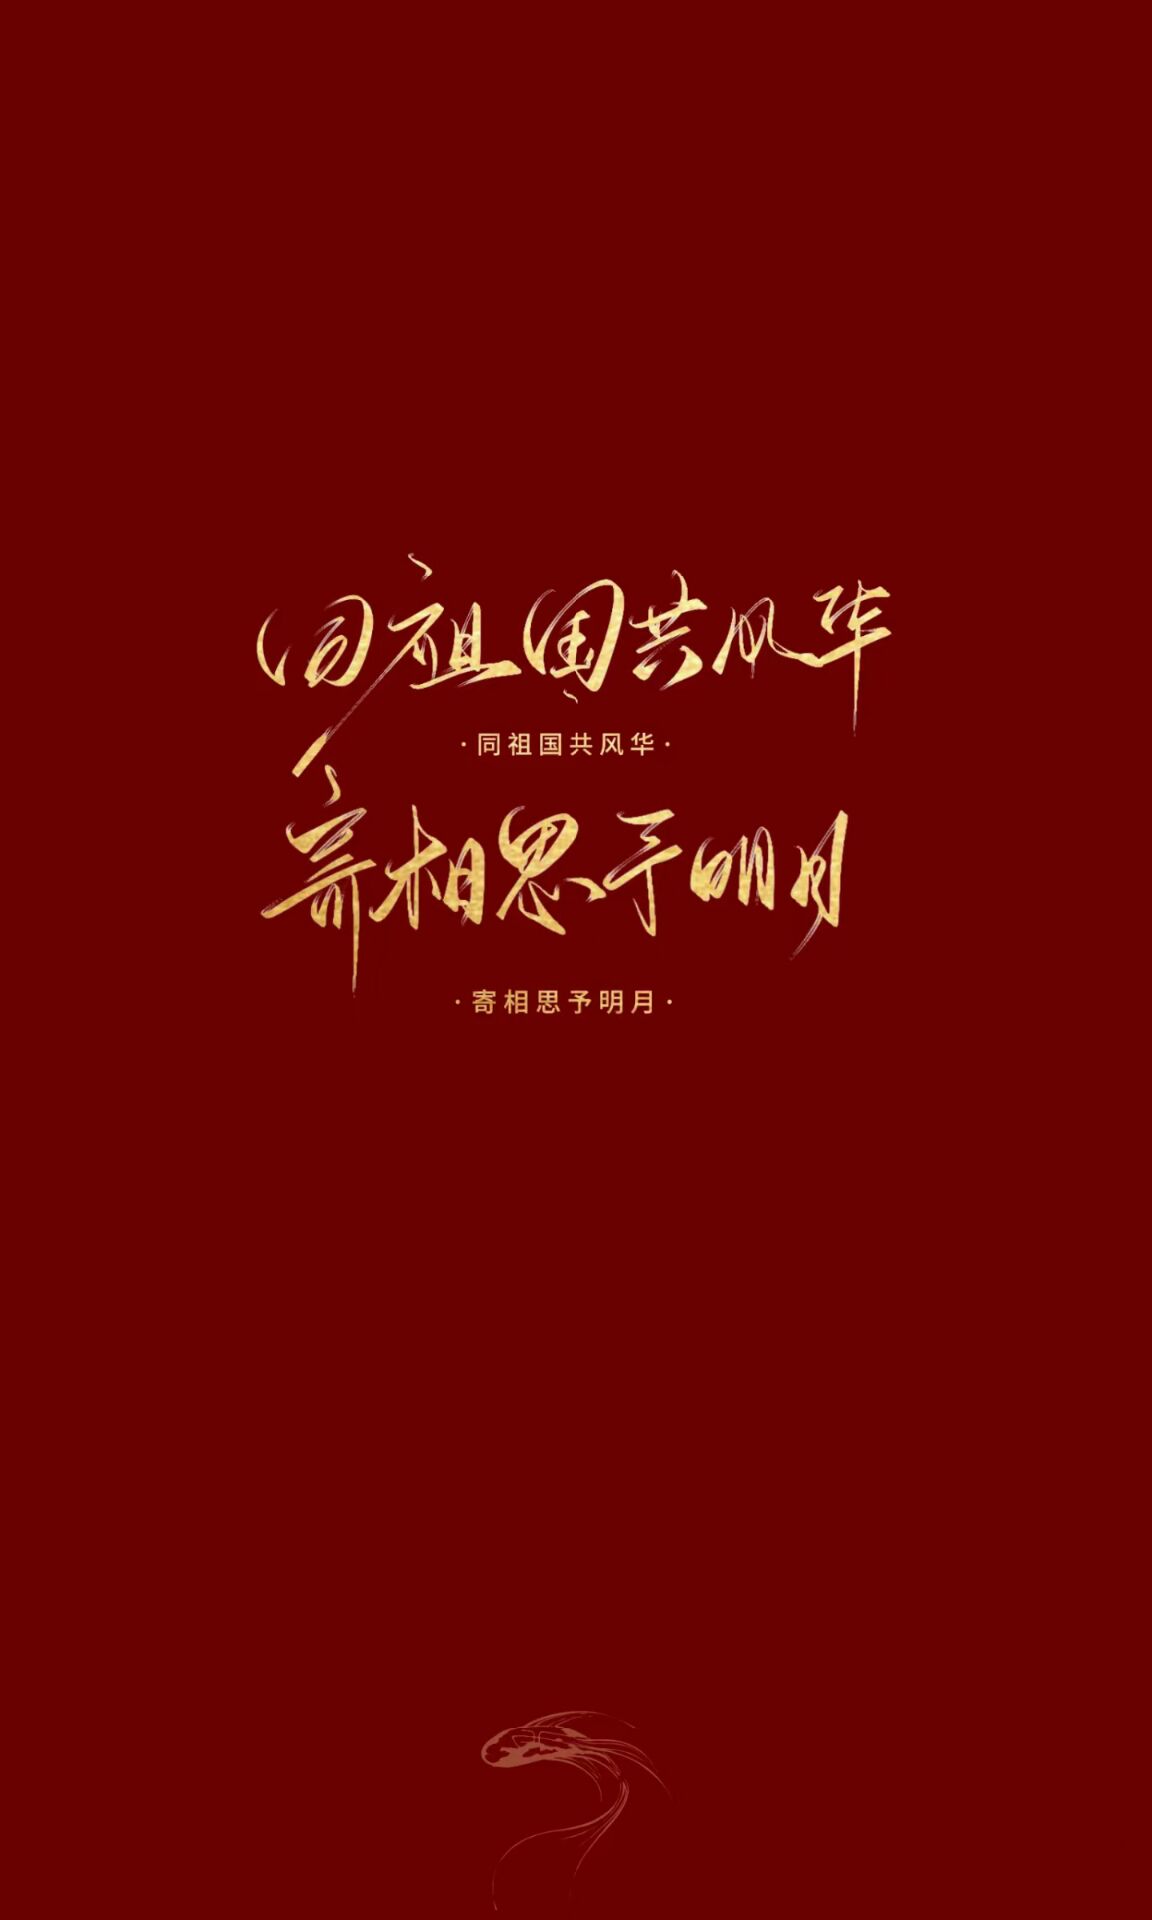 同祖国共风华
·同祖国共风华·
寄相思予明月
·寄相思予明月·